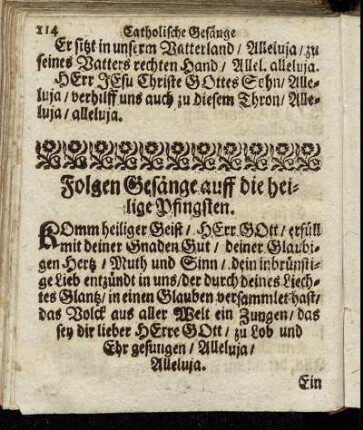 114 Catholische Gesänge
Er sitzt in unserm Vatterland / Alleluja / zu
seines Vatters rechten Hand / Allel. alleluja.
HErr JEsu Christe GOttes Sohn / Alle-
luja / verhilff uns auch zu diesem Thron / Alle-
luja / alleluja.
Folgen Gesänge auff die hei-
lige Pfingsten.
KOmm heiliger Geist / HErr GOtt / erfüll
mit deiner Gnaden Gut / deiner Glaubi-
gen Hertz / Muth und Sinn / dein inbrünsti-
ge Lieb entzündt in uns / der durch deines Liech-
tes Glantz / in einen Glauben versammlet hast /
das Volck aus aller Welt ein Zungen / das
sey dir lieber HErre GOtt / zu Lob und
Ehr gesungen / Alleluja /
Alleluja.
Ein